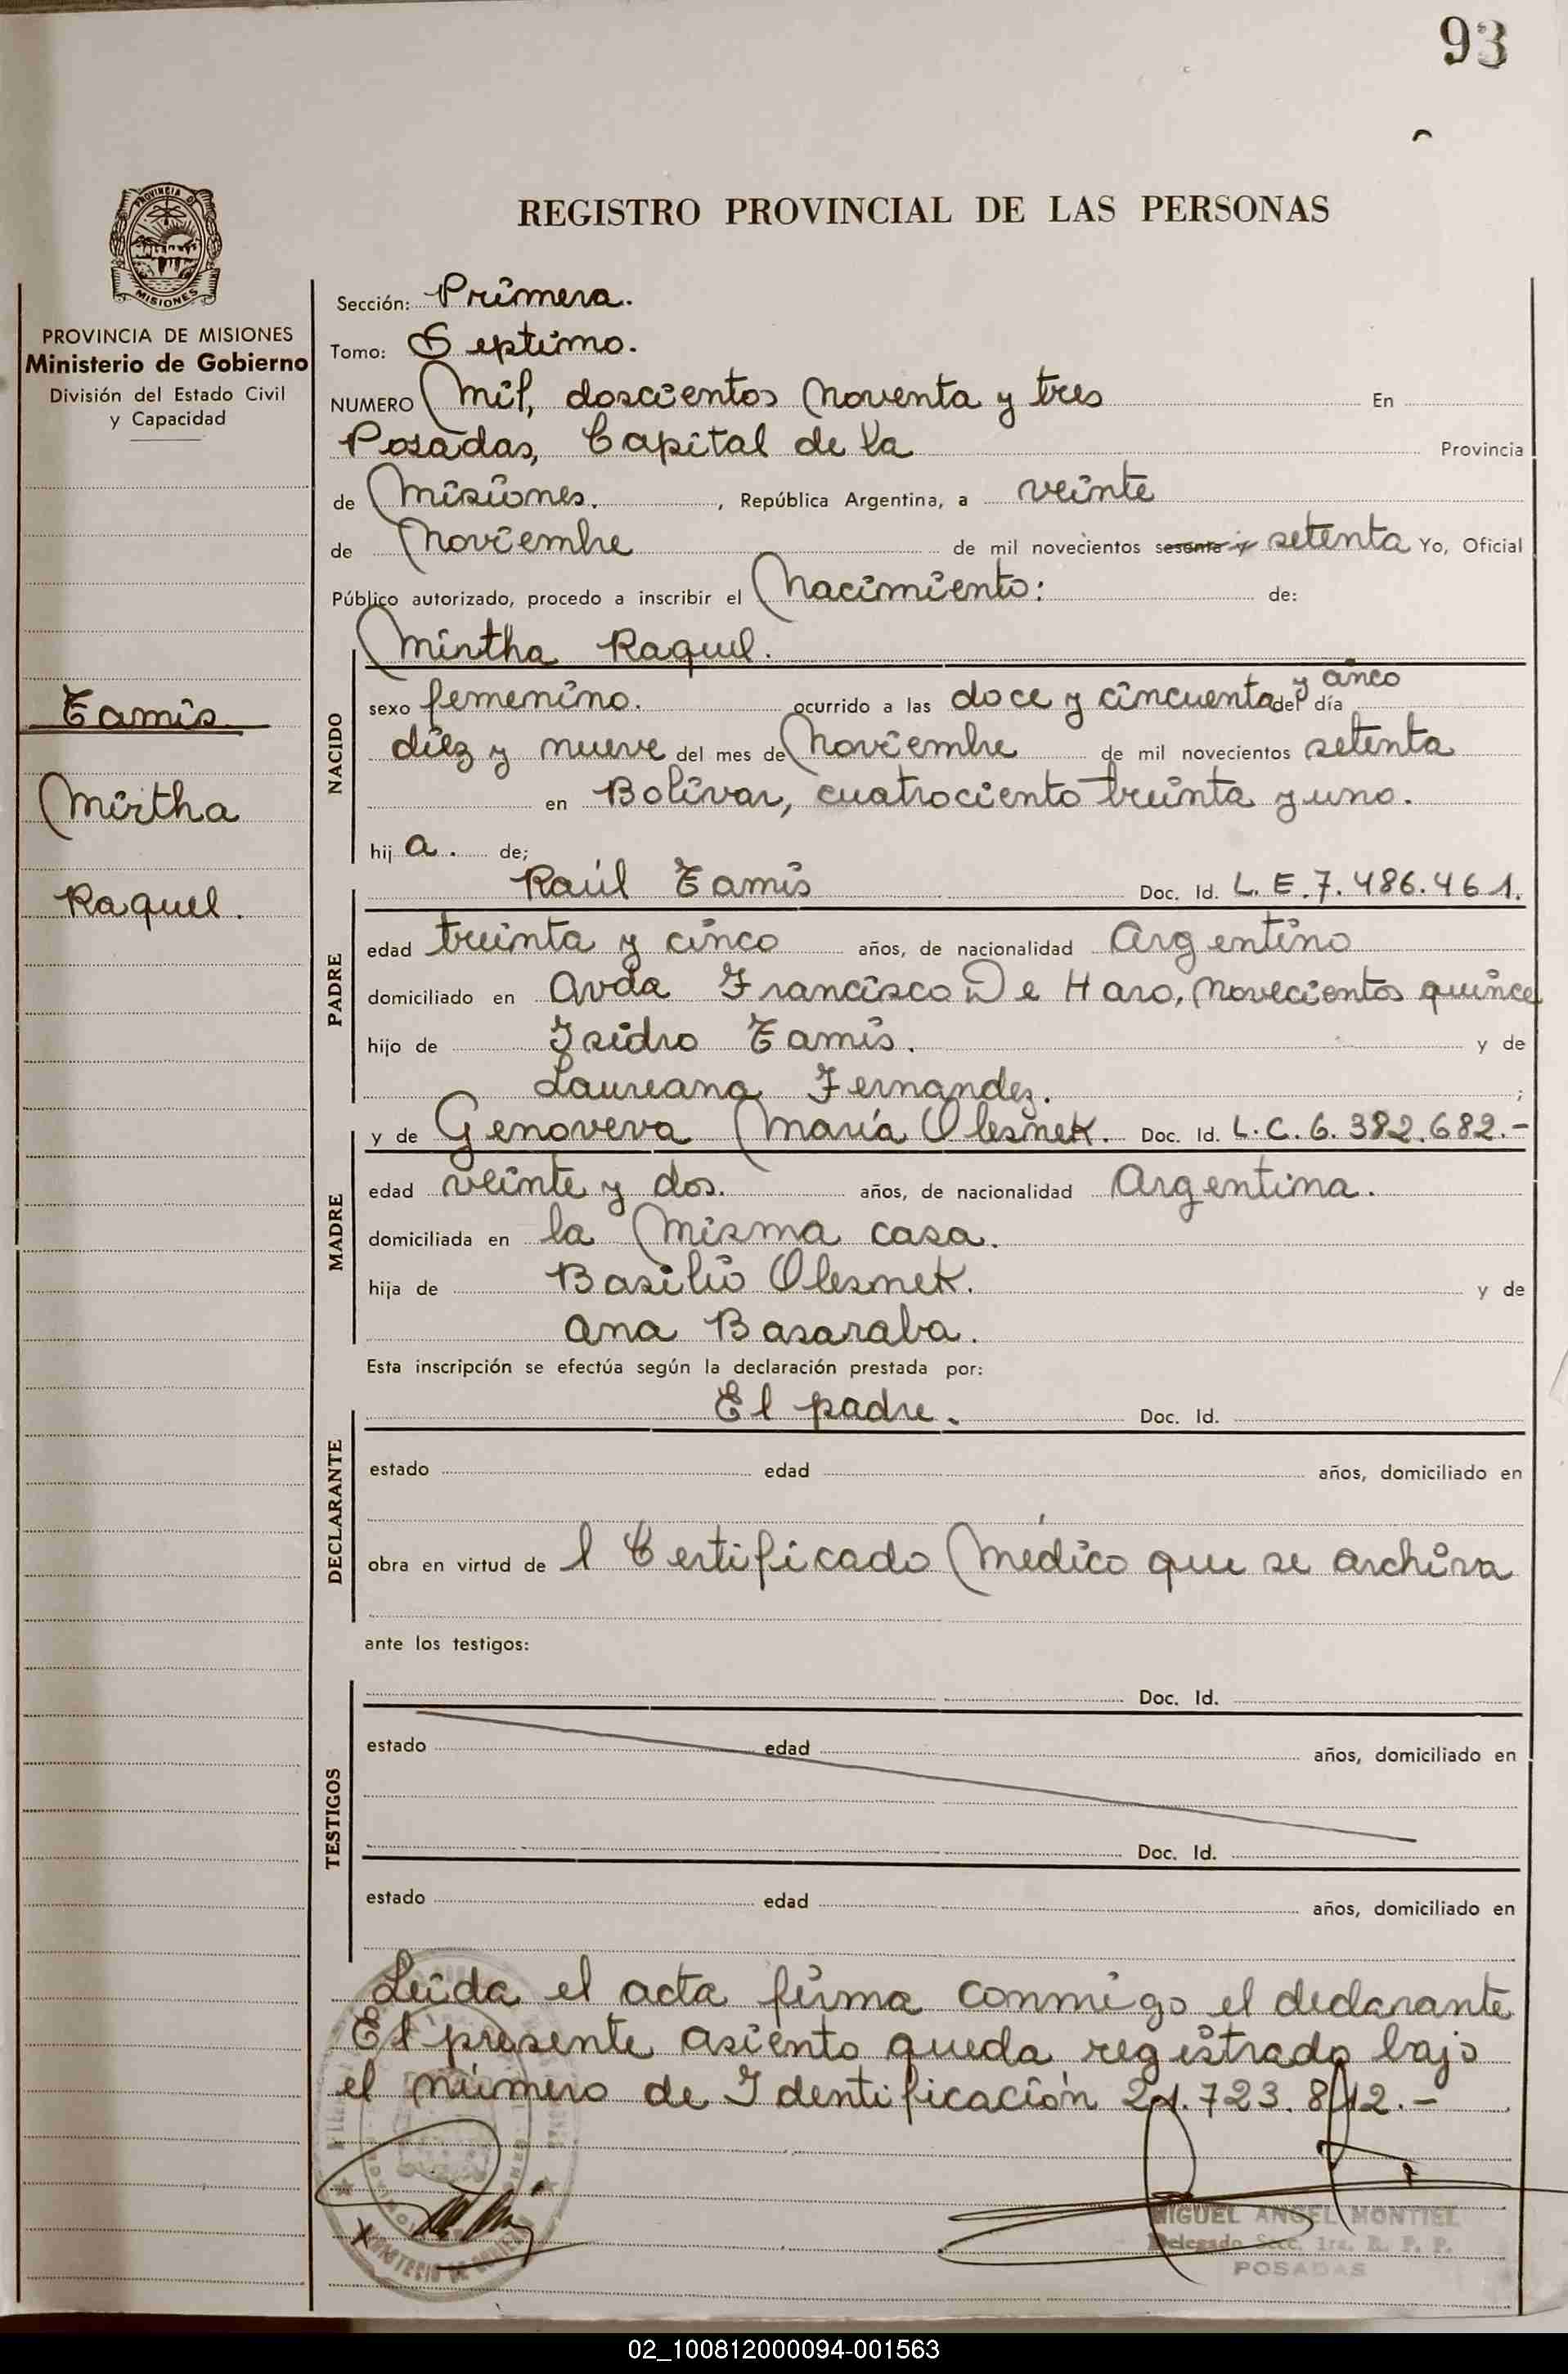 93
REGISTRO PROVINCIAL DE LAS PERSONAS
PROVINCIA DE MISIONES
Ministerio de Gobierno
División del Estado Civil
y Capacidad
Tamis
Mirtha
Raquel.
Sección: Primera.
Tomo: Septimo.
NUMERO Mil, doscientos noventa y tres En
Posadas, Capital de la Provincia
de Misiones. , República Argentina, a veinte
de Noviembre de mil novecientos sesenta y setenta Yo, Oficial
Público autorizado, procedo a inscribir el Nacimiento: de:
Mirtha Raquel.
NACIDO
sexo femenino. ocurrido a las doce y cincuenta y cinco del día
diez y nueve del mes de Noviembre de mil novecientos setenta
en Bolivar, cuatrociento treinta y uno.
hij a. de;
Raúl Tamis Doc. Id. L. E. 7.486.461.
PADRE
edad treinta y cinco años, de nacionalidad Argentino
domiciliado en Avda Francisco De Haro, novecientos quince
hijo de Isidro Tamis. y de
Laureana Fernandez. ;
y de Genoveva María Olesnek. Doc. Id. L.C. 6.382.682.-
MADRE
edad veinte y dos. años, de nacionalidad Argentina.
domiciliada en la misma casa.
hija de Basilio Olesnek. y de
Ana Basaraba.
Esta inscripción se efectúa según la declaración prestada por:
El padre. Doc. Id.
DECLARANTE
estado edad años, domiciliado en
obra en virtud de l Certificado Médico que se archiva
ante los testigos:
Doc. Id.
TESTIGOS
estado edad años, domiciliado en
Doc. Id.
estado edad años, domiciliado en
Leída el acta firma conmigo el declarante
El presente asiento queda registrado bajo
el número de Identificación 21.723.812.-
MIGUEL ANGEL MONTIEL
Delegado Secc. 1ra. R. P. P.
POSADAS
02_100812000094-001563